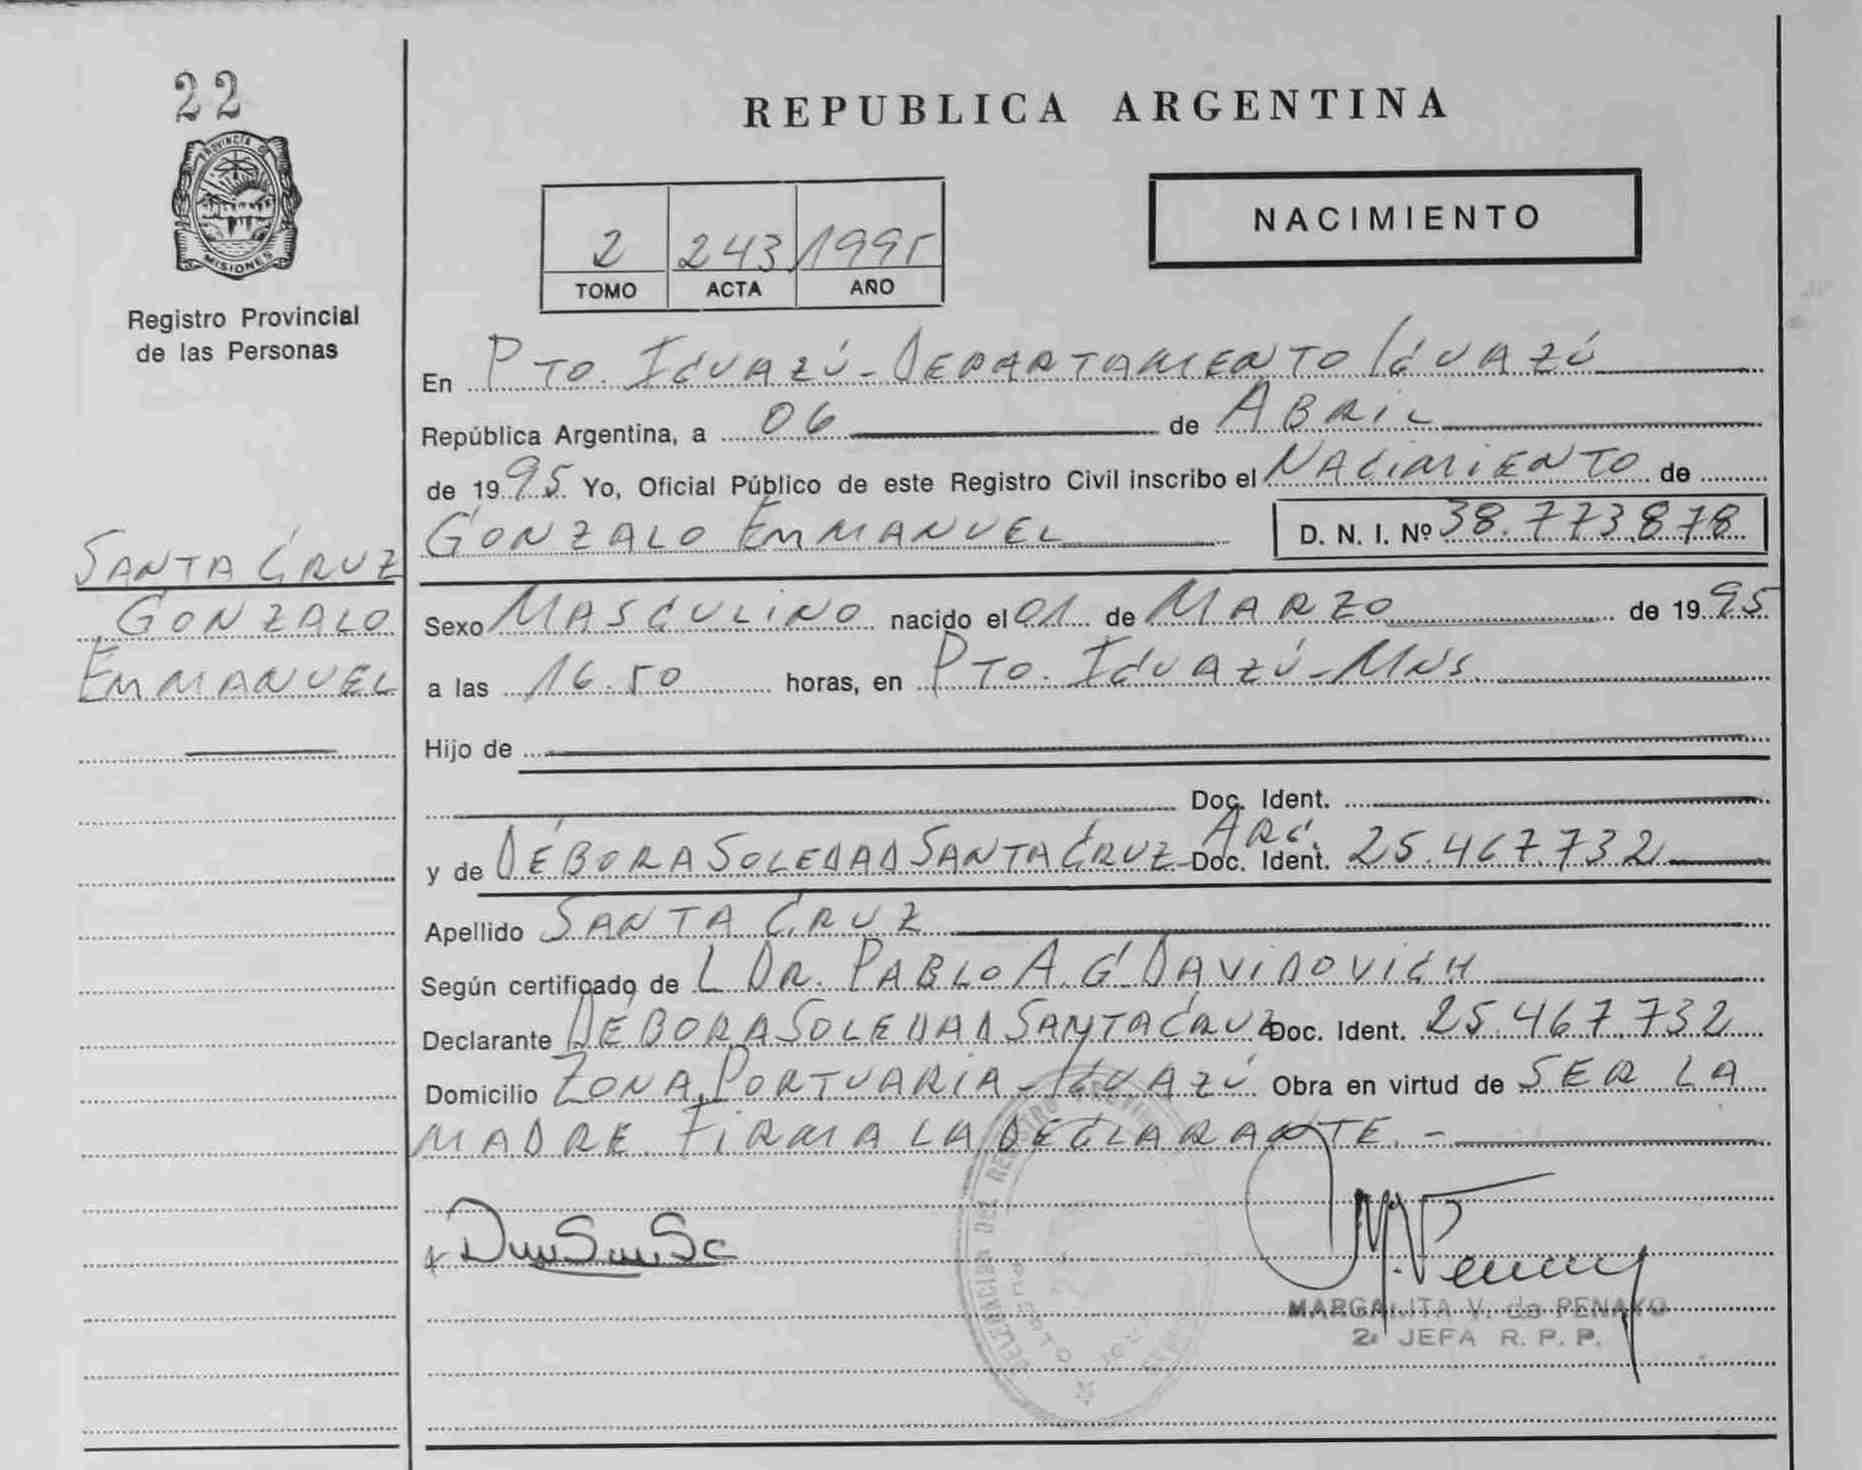 22
PROVINCIA DE
MISIONES
Registro Provincial
de las Personas
SANTA CRUZ
GONZALO
EMMANUEL
REPUBLICA ARGENTINA
2 243 1995
TOMO ACTA AÑO
NACIMIENTO
En PTO. IGUAZÚ - DEPARTAMENTO IGUAZÚ
República Argentina, a 06 de ABRIL
de 1995 Yo, Oficial Público de este Registro Civil inscribo el NACIMIENTO de
GONZALO EMMANUEL D. N. I. Nº 38.773.878
Sexo MASCULINO nacido el 01 de MARZO de 1995
a las 16.50 horas, en PTO. IGUAZÚ - MNS.
Hijo de
Doc. Ident.
y de DÉBORA SOLEDAD SANTA CRUZ - Doc. Ident. ARG. 25.467.732
Apellido SANTA CRUZ
Según certificado de L DR. PABLO A. G. DAVIDOVICH
Declarante DÉBORA SOLEDAD SANTA CRUZ Doc. Ident. 25.467.732
Domicilio ZONA PORTUARIA - IGUAZÚ Obra en virtud de SER LA
MADRE. FIRMA LA DECLARANTE. -
DELEGACION DEL REGISTRO
MARGALITA V. de PENAYO
2ª JEFA R. P. P.